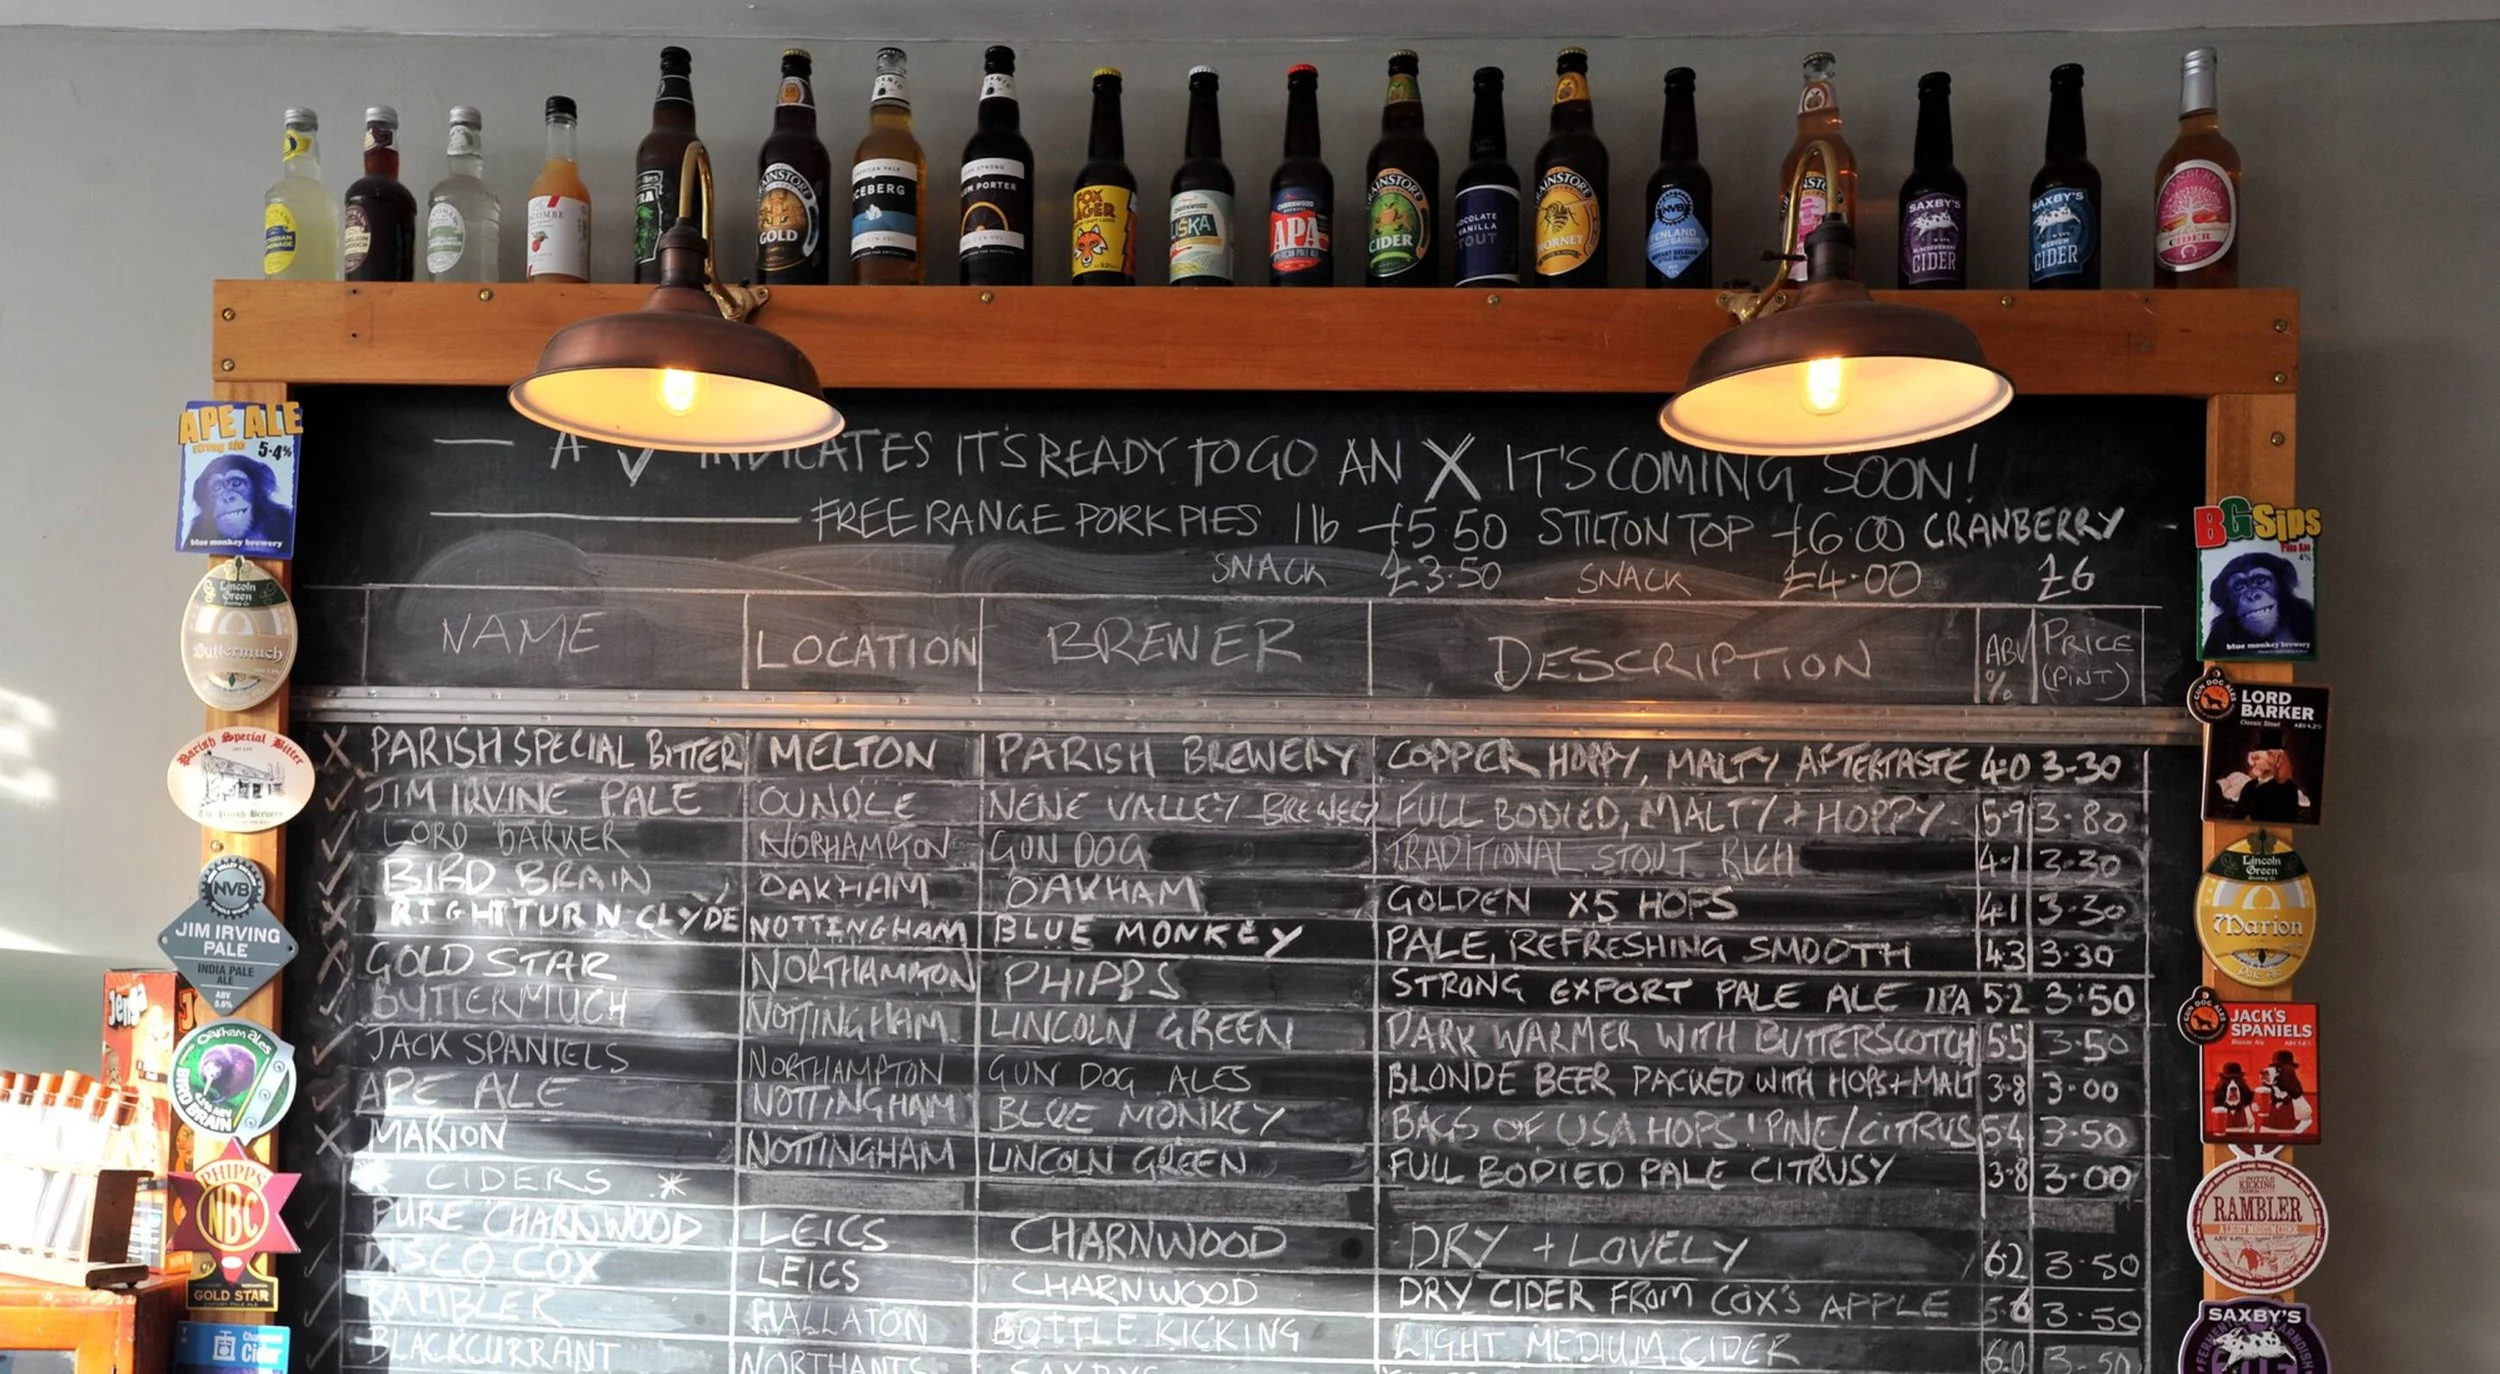 GOLD
ICEBERG
PORTER
FOX
LAGER
APA
CIDER
CHOCOLATE
VANILLA
STOUT
HORNET
NVB
FENLAND
SAXBY'S
BLACKCURRANT
CIDER
SAXBY'S
MEDIUM
CIDER
CIDER
A ✓ INDICATES IT'S READY TO GO AN X IT'S COMING SOON!
FREE RANGE PORK PIES 1lb £5.50 STILTON TOP £6.00 CRANBERRY
SNACK £3.50 SNACK £4.00 £6
NAME LOCATION BREWER DESCRIPTION ABV % PRICE (PINT)
X PARISH SPECIAL BITTER MELTON PARISH BREWERY COPPER HOPPY, MALTY AFTERTASTE 4.0 3-30
✓ JIM IRVINE PALE OUNDLE NENE VALLEY BREWERY FULL BODIED, MALTY + HOPPY 5.9 3.80
✓ LORD BARKER NORHAMPTON GUN DOG TRADITIONAL STOUT RICH 4.1 3.30
✓ BIRD BRAIN OAKHAM OAKHAM GOLDEN X5 HOPS 4.1 3.30
X RIGHT TURN CLYDE NOTTINGHAM BLUE MONKEY PALE, REFRESHING SMOOTH 4.3 3.30
X GOLD STAR NORTHAMPTON PHIPPS STRONG EXPORT PALE ALE IPA 5.2 3.50
✓ BUTTERMUCH NOTTINGHAM LINCOLN GREEN DARK WARMER WITH BUTTERSCOTCH 5.5 3.50
✓ JACK SPANIELS NORTHAMPTON GUN DOG ALES BLONDE BEER PACKED WITH HOPS + MALT 3.8 3.00
✓ APE ALE NOTTINGHAM BLUE MONKEY BAGS OF USA HOPS! PINE/CITRUS 5.4 3.50
X MARION NOTTINGHAM LINCOLN GREEN FULL BODIED PALE CITRUSY 3.8 3.00
* CIDERS *
✓ PURE CHARNWOOD LEICS CHARNWOOD DRY + LOVELY 6.2 3.50
✓ DISCO COX LEICS CHARNWOOD DRY CIDER FROM COX'S APPLE 5.6 3.50
✓ RAMBLER HALLATON BOTTLE KICKING LIGHT MEDIUM CIDER 6.0 3.50
✓ BLACKCURRANT NORTHANTS SAXBYS
APE ALE
strong ale 5.4%
blue monkey brewery
Lincoln
Green
Brewing Co
Buttermuch
Parish Special Bitter
The Parish Brewery
NVB
JIM IRVING
PALE
INDIA PALE
ALE
ABV
5.6%
Jenga
Oakham ales
BIRD BRAIN
PHIPPS
NBC
GOLD STAR
Cider
BG Sips
Pale Ale
4%
blue monkey brewery
GUN DOG ALES
LORD
BARKER
Classic Stout
ABV 4.2%
Lincoln
Green
Brewing Co
Marion
PALE ALE
GUN DOG ALES
JACK'S
SPANIELS
Blonde Ale
ABV 3.8%
BOTTLE
KICKING
RAMBLER
A LIGHT MEDIUM CIDER
SAXBY'S